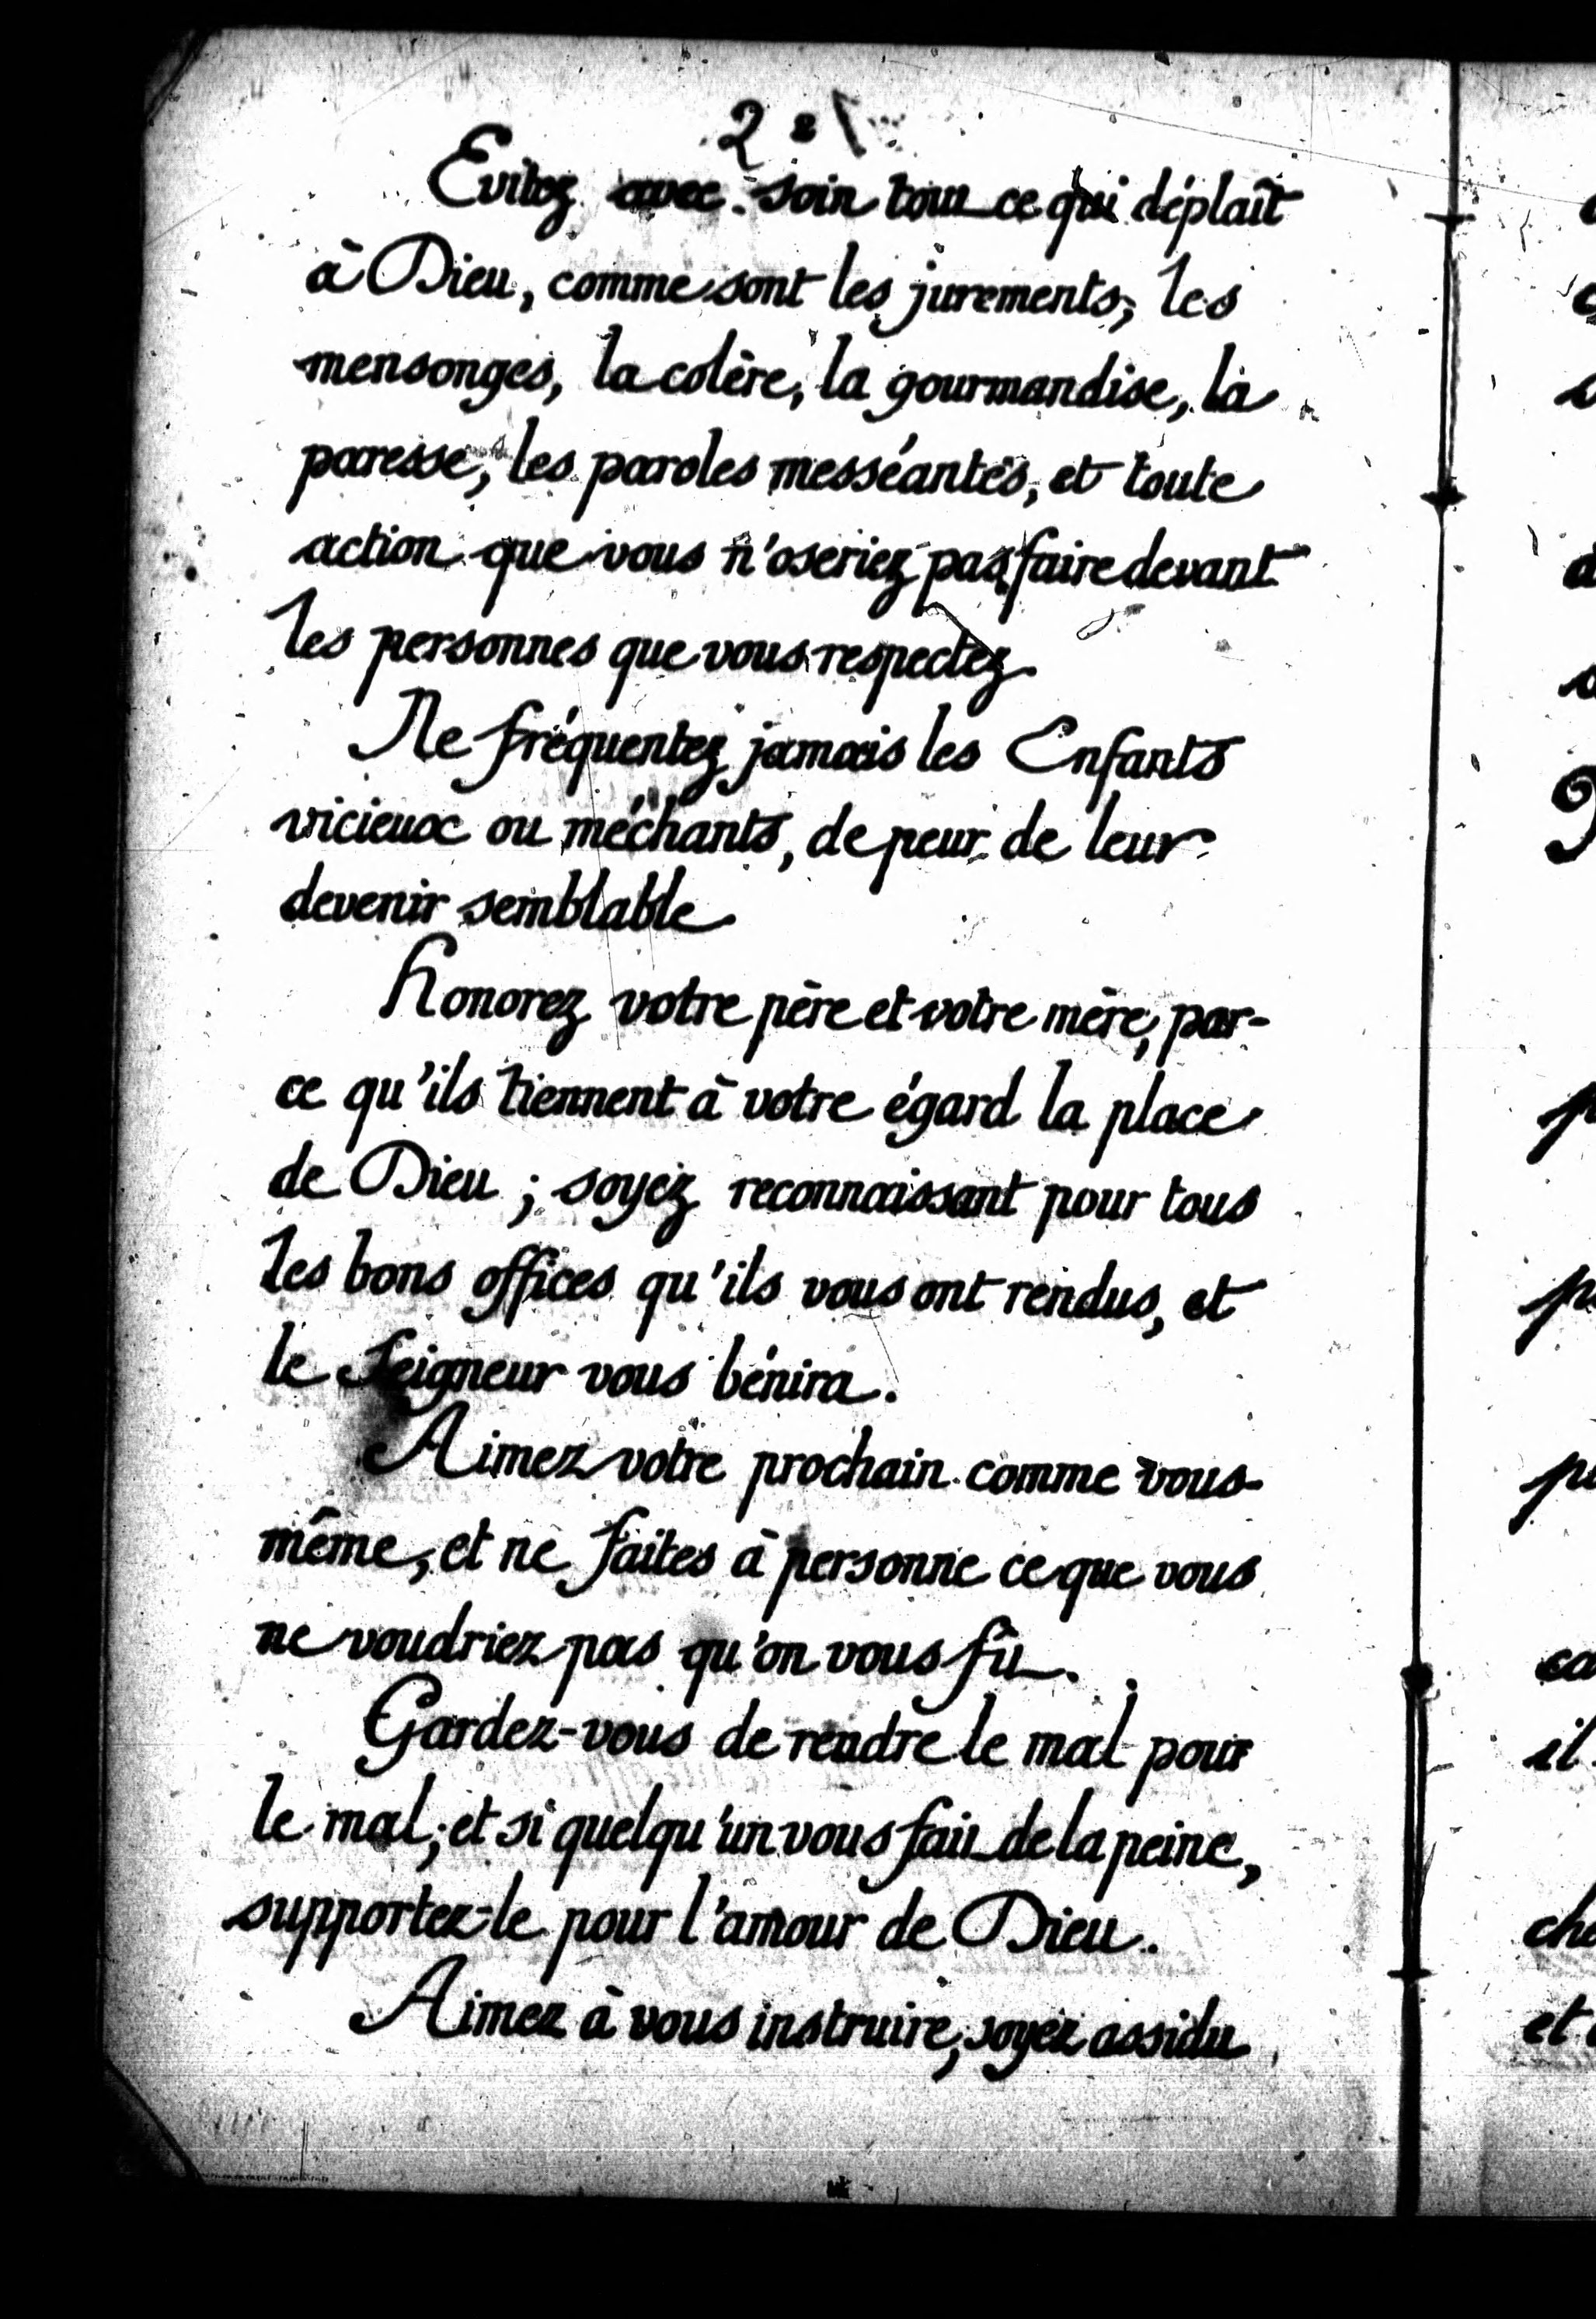 2
Evitez avec soin tout ce qui déplaît
à Dieu, comme sont les jurements, les
mensonges, la colère, la gourmandise, la
paresse, les paroles messéantes, et toute
action que vous n'oseriez pas faire devant
les personnes que vous respectez.
Ne fréquentez jamais les Enfants
vicieux ou méchants, de peur de leur
devenir semblable.
Honorez votre père et votre mère, par-
ce qu'ils tiennent à votre égard la place
de Dieu ; soyez reconnaissant pour tous
les bons offices qu'ils vous ont rendus, et
le Seigneur vous bénira.
Aimez votre prochain comme vous-
même, et ne faites à personne ce que vous
ne voudriez pas qu'on vous fît.
Gardez-vous de rendre le mal pour
le mal; et si quelqu'un vous fait de la peine,
supportez-le pour l'amour de Dieu.
Aimez à vous instruire, soyez assidu